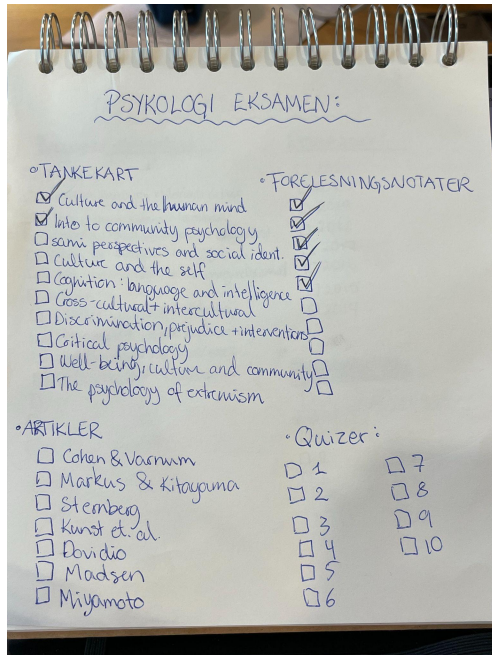 PSYKOLOGI EKSAMEN:
• TANKEKART
☑ Culture and the human mind
☑ Intro to community psychology
☐ sami perspectives and social ident.
☐ Culture and the self
☐ Cognition: language and intelligence
☐ Cross-cultural + intercultural
☐ Discrimination, prejudice + interventions
☐ Critical psychology
☐ Well-being, culture and community
☐ The psychology of extremism
• FORELESNINGSNOTATER
☑
☑
☑
☑
☑
☐
☐
☐
☐
☐
• ARTIKLER
☐ Cohen & Varnum
☐ Markus & Kitayama
☐ Sternberg
☐ Kunst et. al.
☐ Dovidio
☐ Madsen
☐ Miyamoto
• Quizer:
☐ 1
☐ 2
☐ 3
☐ 4
☐ 5
☐ 6
☐ 7
☐ 8
☐ 9
☐ 10